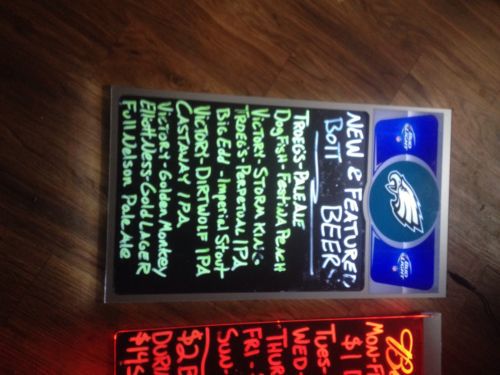 BUD LIGHT
BUD LIGHT
NEW & FEATURED
BOTT BEER
TROEG'S-PALE ALE
DOGFISH-FESTINA PEACH
VICTORY-STORM KING
TROEG'S-PERPETUAL IPA
Big Edd-Imperial Stout
VICTORY-DIRTWOLF IPA
CASTAWAY IPA
VICTORY-Golden Monkey
Elliott Ness-Gold LAGER
Full Nelson Pale Ale
MON-F
$1
TUES-
WED-
THUR
FRI-
SUN-
$2
DURIN
$4